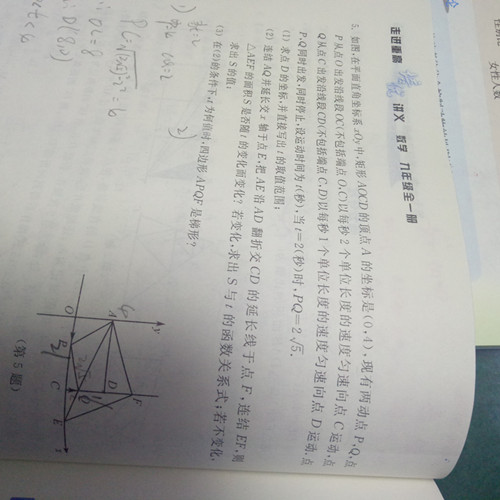 走进重高 讲义 数学 九年级全一册
5. 如图,在平面直角坐标系 xOy 中,矩形 AOCD 的顶点 A 的坐标是(0,4),现有两动点 P,Q,点
P 从点 O 出发沿线段 OC(不包括端点 O,C)以每秒 2 个单位长度的速度匀速向点 C 运动,点
Q 从点 C 出发沿线段 CD(不包括端点 C,D)以每秒 1 个单位长度的速度匀速向点 D 运动,点
P,Q 同时出发,同时停止,设运动时间为 t(秒),当 t=2(秒)时,PQ=2√5.
(1) 求点 D 的坐标,并直接写出 t 的取值范围;
(2) 连结 AQ 并延长交 x 轴于点 E,把 AE 沿 AD 翻折交 CD 的延长线于点 F,连结 EF,则
△AEF 的面积 S 是否随 t 的变化而变化?若变化,求出 S 与 t 的函数关系式;若不变化,
求出 S 的值;
(3) 在(2)的条件下,t 为何值时,四边形 APQF 是梯形?
y
A
F
D
Q
O
P
C
E
x
(第 5 题)
OC=8
2)